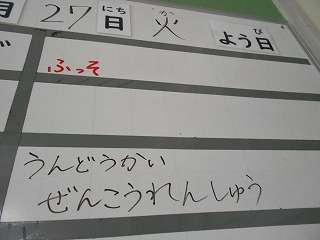 27日 火 よう日
にち か び
ふっそ
うんどうかい
ぜんこうれんしゅう